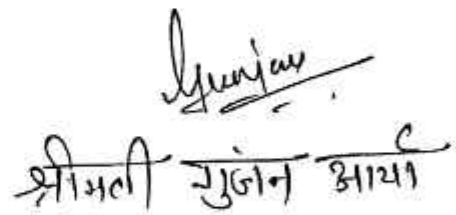 Gunjan
श्रीमती गुंजन आर्या